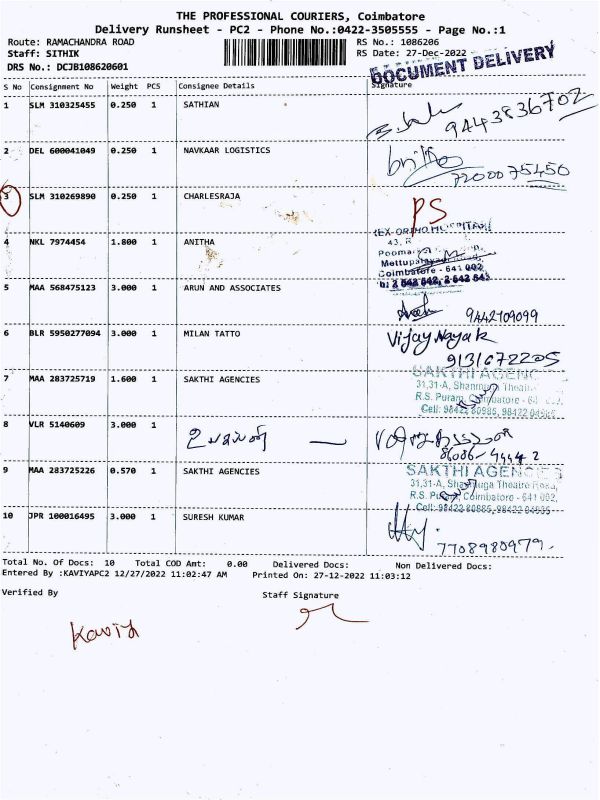 THE PROFESSIONAL COURIERS, Coimbatore
Delivery Runsheet - PC2 - Phone No.:0422-3505555 - Page No.:1
Route: RAMACHANDRA ROAD RS No.: 1086206
Staff: SITHIK RS Date: 27-Dec-2022
DRS No.: DCJB108620601 DOCUMENT DELIVERY
S No Consignment No Weight PCS Consignee Details Signature
1 SLM 310325455 0.250 1 SATHIAN
9443836702
2 DEL 600041049 0.250 1 NAVKAAR LOGISTICS
7200075450
3 SLM 310269890 0.250 1 CHARLESRAJA PS
4 NKL 7974454 1.800 1 ANITHA
43, R
Mettupalayam
Coimbatore - 641 002
5 MAA 568475123 3.000 1 ARUN AND ASSOCIATES
9442109099
6 BLR 5950277094 3.000 1 MILAN TATTO Vijay Nayak
9131672205
7 MAA 283725719 1.600 1 SAKTHI AGENCIES SAKTHI AGENC
31,31-A, Shanmuga Theatre
R.S. Puram, Coimbatore - 64
Cell: 98422 80985, 98422 04935
8 VLR 5140609 3.000 1
86086-44442
9 MAA 283725226 0.570 1 SAKTHI AGENCIES SAKTHI AGENCIES
31,31-A, Shanmuga Theatre Road,
R.S. Puram, Coimbatore - 641 002,
Cell: 98422 80985, 98422 04935
10 JPR 100016495 3.000 1 SURESH KUMAR
7708980979.
Total No. Of Docs: 10 Total COD Amt: 0.00 Delivered Docs: Non Delivered Docs:
Entered By :KAVIYAPC2 12/27/2022 11:02:47 AM Printed On: 27-12-2022 11:03:12
Verified By Staff Signature